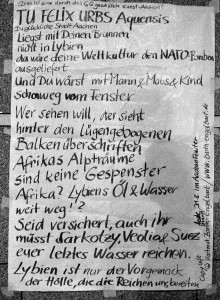 TU FELIX URBS Aquensis
Liegst mit Deinen Brunnen
nicht in Lybien
da wäre deine Weltkultur den NATO-Bomben
ausgeliefert
und Du wärst mit Mann & Maus & Kind
schonweg vom Fenster
Wer sehen will, der sieht
hinter den Lügengebogenen
Balkenüberschriften
Afrikas Alpträume
sind keine Gespenster
Afrika? Lybens Öl & Wasser
weit weg!?
Seid versichert, auch ihr
müsst Sarkotzy, Veolia & Suez
euer letztes Wasser reichen.
Lybien ist nur der Vorgemack
der Hölle, die die Reichen uns bereiten